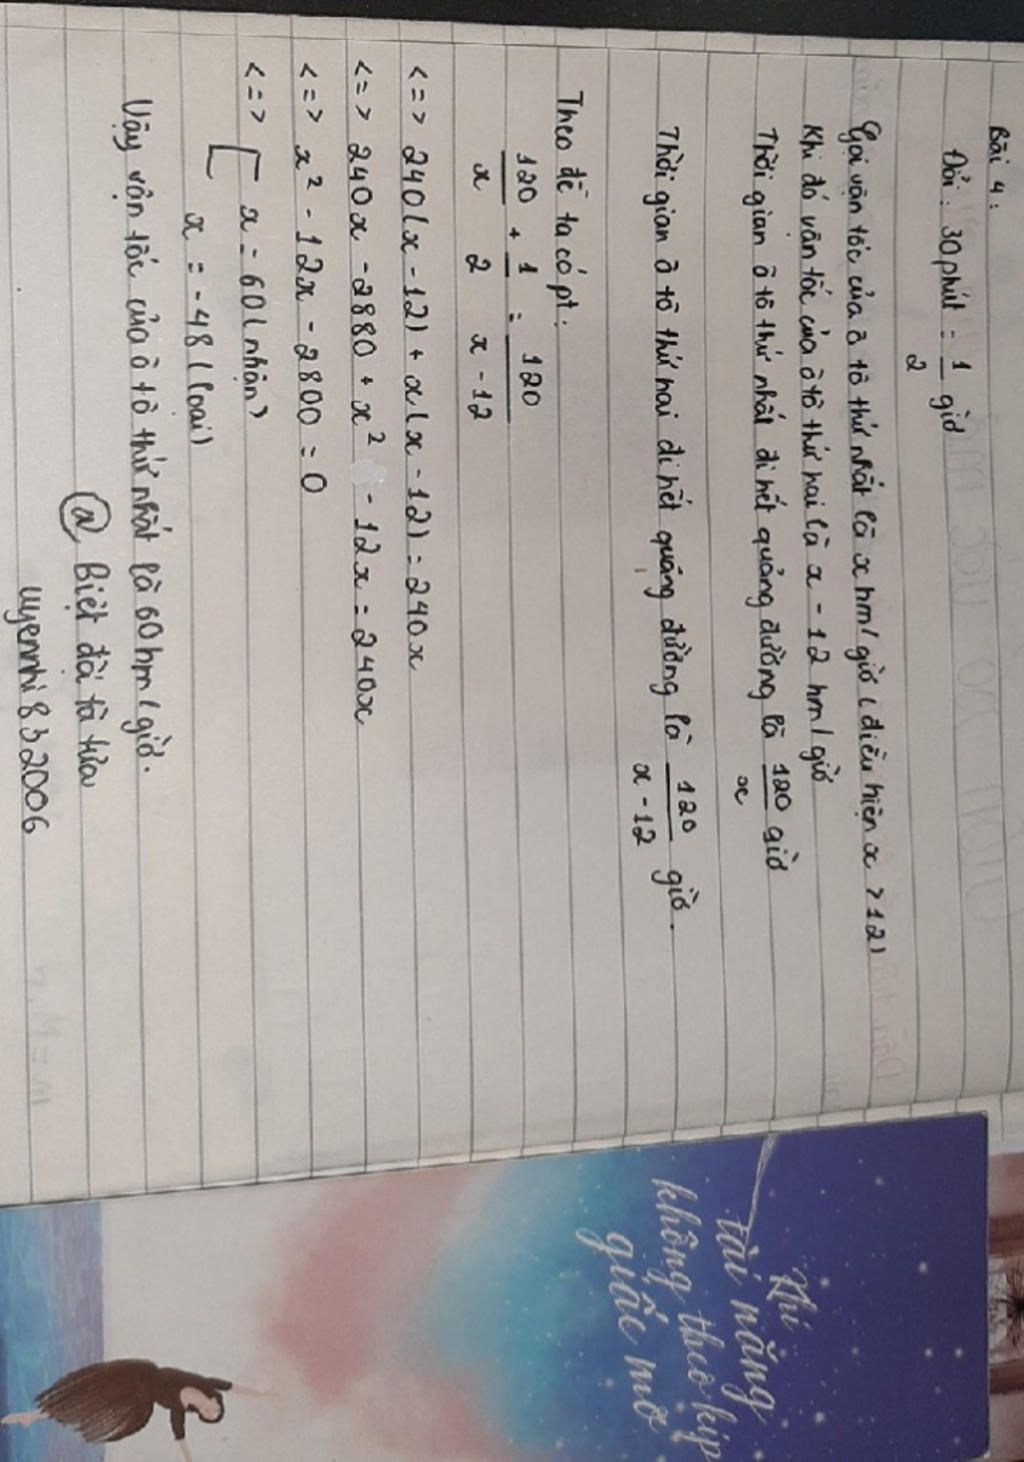 Bài 4:
Đổi: 30phút = 1/2 giờ
Gọi vận tốc của ô tô thứ nhất là x km/giờ (điều kiện x > 12)
Khi đó vận tốc của ô tô thứ hai là x - 12 km/giờ
Thời gian ô tô thứ nhất đi hết quảng đường là 120/x giờ
Thời gian ô tô thứ hai đi hết quảng đường là 120/x - 12 giờ.
Theo đề ta có pt:
120/x + 1/2 = 120/x - 12
<=> 240(x - 12) + x(x - 12) = 240x
<=> 240x - 2880 + x² - 12x = 240x
<=> x² - 12x - 2800 = 0
<=> [ x = 60 (nhận)
x = -48 (loại)
Vậy vận tốc của ô tô thứ nhất là 60 km/giờ.
@ Biệt đội tia lửa
uyennhi832006
Khi
tài năng
không theo kịp
giấc mơ